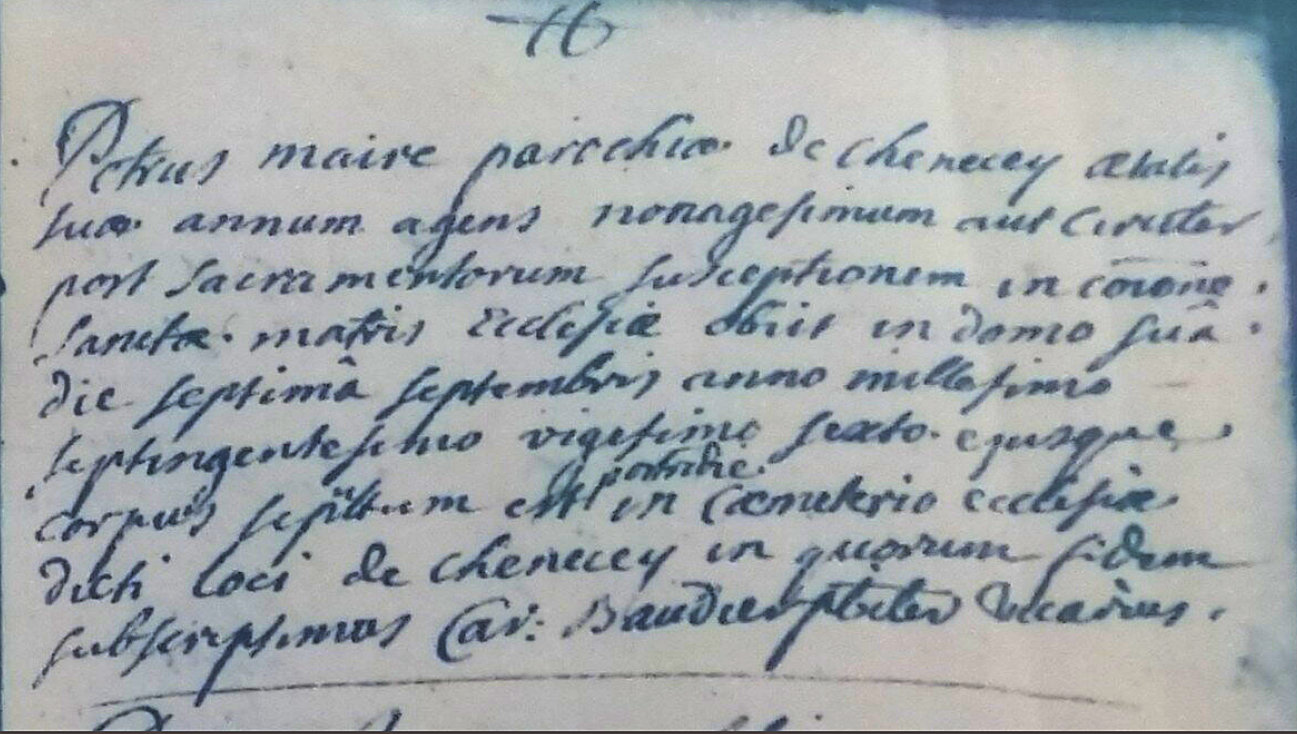 Petrus maire parochiæ de chenecey ætatis
suæ annum agens nonagesimum aut Circiter
post Sacramentorum susceptionem in com̄one
Sanctæ matris Ecclesiæ obiit in domo suâ
die septimâ septembris anno millesimo
septingentesimo vigesimo sexto ejusque
postridie
corpus sepultum est in Cæmeterio ecclesiæ
dicti loci de chenecey in quorum fidem
subscripsimus Car: Baudier pbiter vicarius.